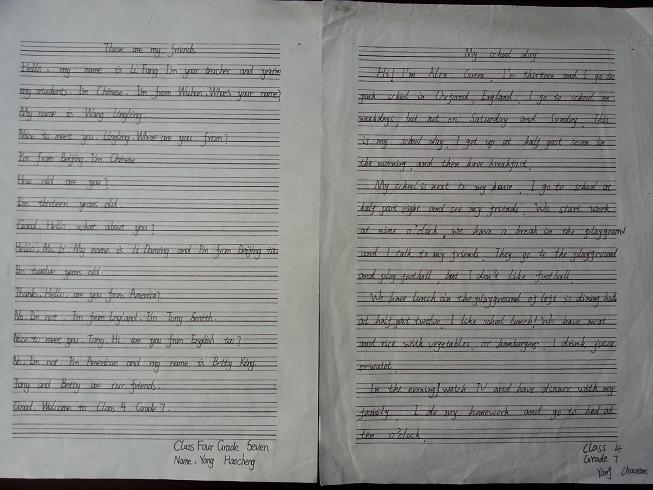 These are my friends
Hello, my name is Li Fang I'm your teacher and you're
my students. I'm Chinese. I'm from Wuhan. What's your name?
My name is Wang Lingling.
Nice to meet you. Lingling. Where are you from?
I'm from Beijing. I'm Chinese
How old are you?
I'm thirteen years old.
Good. Hello, what about you?
Hello. Ms Li My name is Li Daming and I'm from Beijing too
I'm twelve years old.
Thanks. Hello. are you from America?
No. I'm not. I'm from England. I'm Tony Smith.
Nice to meet you. Tony. Hi. are you from English too?
No. I'm not. I'm American and my name is Betty King.
Tony and Betty are our friends.
Good. Welcome to Class 4 Grade 7.
Class Four Grade Seven
Name: Yang Haocheng
My school day
Hi! I'm Alex Green. I'm thirteen and I go to
park school in Oxford, England. I go to school on
weekdays, but not on Saturday and Sunday. This
is my school day. I get up at half past seven in
the morning, and then have breakfast.
My school is next to my house. I go to school at
half past eight and see my friends. We start work
at nine o'clock. we have a break in the playground
and I talk to my friends. They go to the playground
and play football, but I don't like football.
We have lunch in the playground of left is dining hall
at half past twelve. I like school lunch! We have meat
and rice with vegetables. or hamburgers. I drink juice
orwater.
In the evening, I watch TV and have dinner with my
family. I do my homework and go to bed at
ten o'clock.
Class 4
Grade 7
Yang